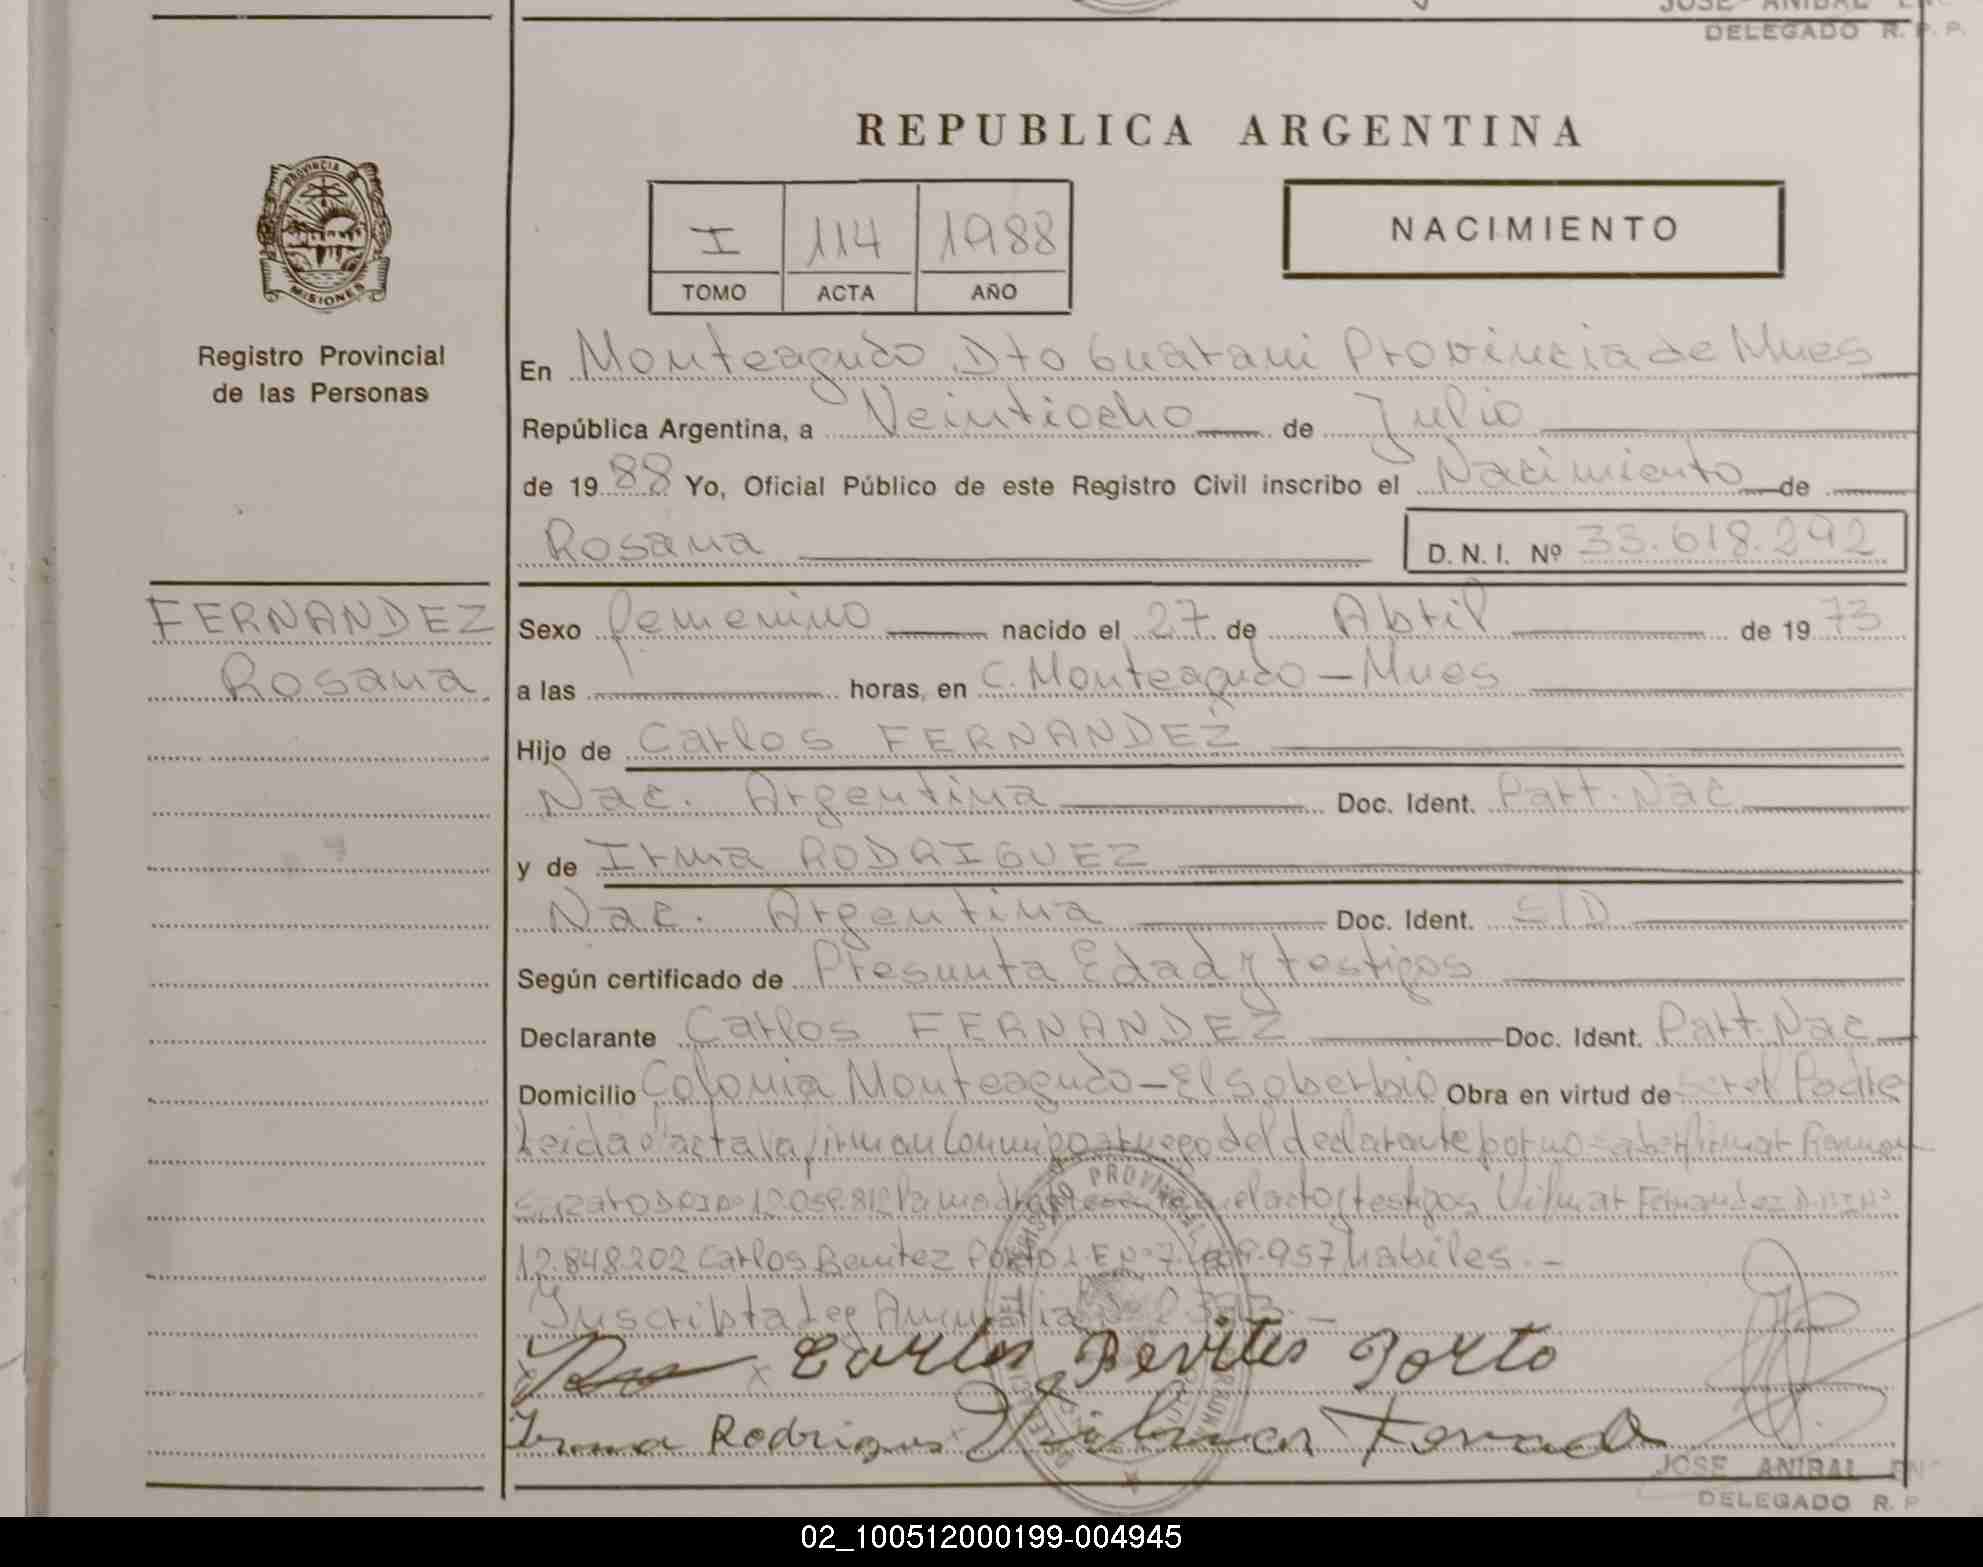 JOSE ANIBAL
DELEGADO R. P. P.
REPUBLICA ARGENTINA
PROVINCIA DE
MISIONES
I 114 1988
TOMO ACTA AÑO
NACIMIENTO
Registro Provincial
de las Personas
En Monteagudo Dto Guarani Provincia de Mnes
República Argentina, a Veintiocho de Julio
de 1988 Yo, Oficial Público de este Registro Civil inscribo el Nacimiento de
Rosana D. N. I. Nº 33.618.292
FERNANDEZ
Rosana
Sexo femenino nacido el 27 de Abril de 1973
a las horas, en C. Monteagudo - Mnes
Hijo de Carlos FERNANDEZ
Nac. Argentina Doc. Ident. Part. Nac
y de Irma RODRIGUEZ
Nac. Argentina Doc. Ident. S/D
Según certificado de Presunta Edad y testigos
Declarante Carlos FERNANDEZ Doc. Ident. Part. Nac
Domicilio Colonia Monteagudo - El Soberbio Obra en virtud de ser el Padre
Leida el acta la firman conmigo a ruego del declarante por no saber firmar Ramon
la madre el acto y testigos Vilmar Fernandez
12.848.202 Carlos Benitez Porto habiles. -
Inscripta Ley Amnistia
Carlos Benites Porto
Irma Rodrigues Vilmar
REGISTRO PROVINCIAL
JOSE ANIBAL
DELEGADO R. P
02_100512000199-004945